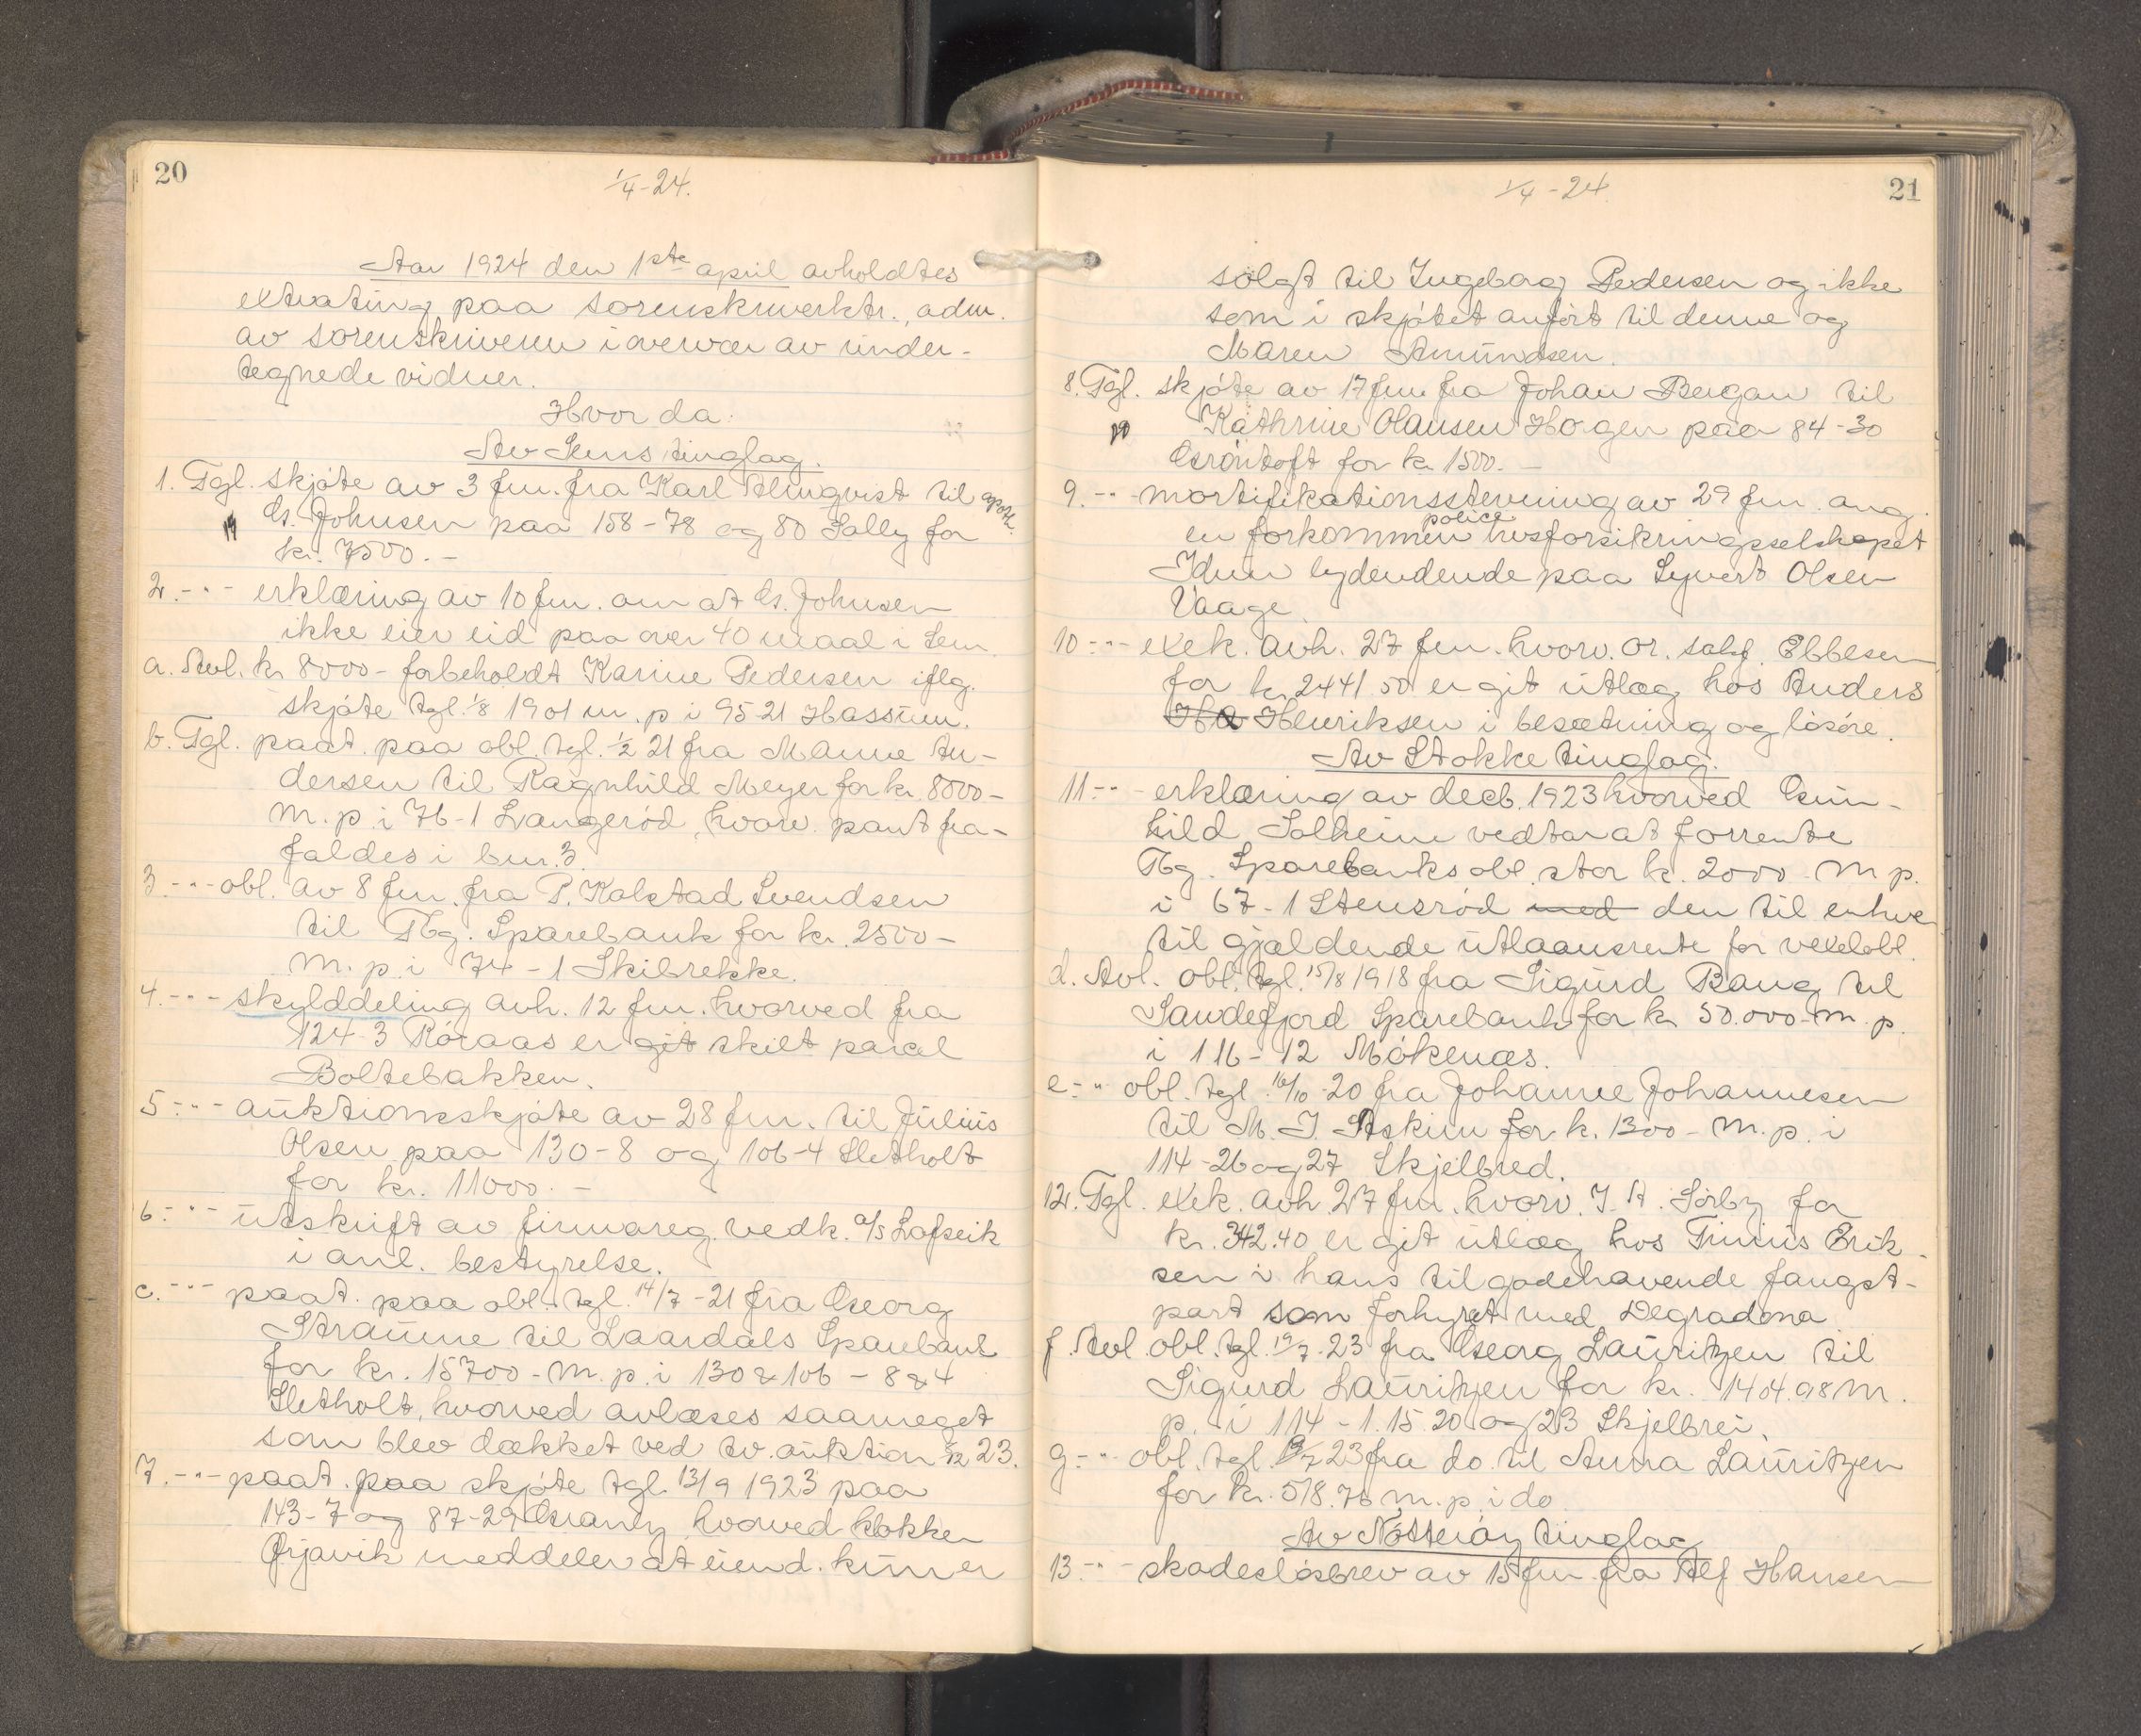 20
1/4-24.
Aar 1924 den 1ste april avholdtes
extrating paa sorenskriverktr., adm.
av sorenskriveren i overvær av under-
tegnede vidner.
Hvor da:
Av Sems tinglag.
1. Tgl. skjøte av 3 fm. fra Karl Almqvist til apoth.
G. Johnsen paa 158-78 og 80 Solly for
kr. 7500.-
2.-"- erklæring av 10 fm. om at G. Johnsen
ikke eier eid paa over 40 maal i Sem.
a. Avl. kr 8000- forbeholdt Karine Pedersen iflg.
skjøte tgl. 1/8 1901 m. p i 95-21 Hassum.
b. Tgl. paat. paa obl. tgl. 1/2 21 fra Manne An-
dersen til Ragnhild Meyer for kr. 8000-
m. p. i 76-1 Langerød, hvorv. pant fra-
faldes i bnr. 3.
3.-"- obl. av 8 fm. fra P. Kolstad Svendsen
til Tbg. Sparebank for kr. 2500-
m. p. i 74-1 Skibrekke.
4.-"- skylddeling avh. 12 fm. hvorved fra
124-3 Røraas er git skilt parcel
Boltebakken.
5-"- auktionsskjøte av 28 fm. til Julius
Olsen paa 130-8 og 106-4 Sletholt
for kr. 11000.-
6-"- utskrift av firmareg. vedk. a/s Lofseik
i anl. bestyrelse.
c.-"- paat. paa obl. tgl. 14/7-21 fra Georg
Straume til Laardals Sparebank
for kr. 15700- m. p. i 130 & 106 - 8 & 4
Sletholt, hvorved avlæses saameget
som blev dækket ved tv. auktion 23.
7.-"- paat. paa skjøte tgl. 13/9 1923 paa
143-7 og 87-29 Granly hvorved klokker
Ørjavik meddeler at eiend. kun er
1/4-24.
21
solgt til Ingeborg Pedersen og ikke
som i skjøtet anført til denne og
Maren Amundsen.
8. Tgl. skjøte av 17 fm. fra Johan Bergan til
Kathrine Olausen Horgen paa 84-30
Grøntoft for kr. 1500.-
9.-"- mortifikationsstevning av 29 fm. ang.
en forkommen police livsforsikringsselskapet
Idun lydendende paa Syvert Olsen
Vaage.
10-"- exek. avh. 27 fm. hvorv. or. sakf. Ebbesen
for kr. 2441.50 er git utlæg hos Anders
Ha Henriksen i besætning og løsøre.
Av Stokke tinglag.
11-"- erklæring av decb. 1923 hvorved Gun-
hild Solheim vedtar at forrente
Tbg. Sparebanks obl. stor kr. 2000- m p.
i 67-1 Stensrød med den til enhver
til gjældende utlaansrente for vexelobl.
d. Avl. obl. tgl. 15/8 1918 fra Sigurd Bang til
Sandefjord Sparebank for kr 50.000- m. p.
i 116-12 Møkenæs.
e-"- obl. tgl. 16/10-20 fra Johanne Johannesen
til M. J. Askim for k. 1300- m. p. i
114-26 og 27 Skjelbred.
12. Tgl. exek. avh 27 fm. hvorv. J. A. Sørby for
kr. 342.40 er git utlæg hos Trinius Erik-
sen i hans tilgodehavende fangst-
part som forhyret med Degradona
f. Avl. obl. tgl. 19/7-23 fra Georg Lauritzen til
Sigurd Lauritzen for kr. 1404.98 m.
p. i 114-1.15.20 og 23 Skjelbrei.
g-"- obl. tgl. 19/7 23 fra do. til Anna Lauritzen
for kr. 518.76 m. p. i do.
Av Nøtterøy tinglag
13-"- skadesløsbrev av 15 fm. fra Alf Hansen